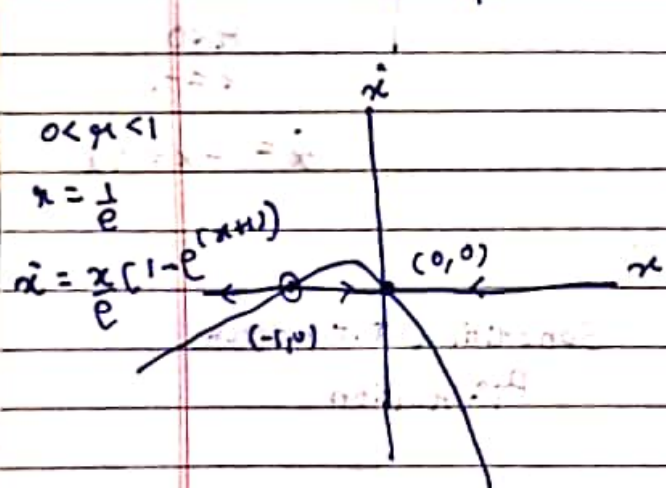 ẋ
0 < r < 1
r = 1/e
ẋ = x/e [1 - e^(x+1)]
(0,0)
x
(-1,0)